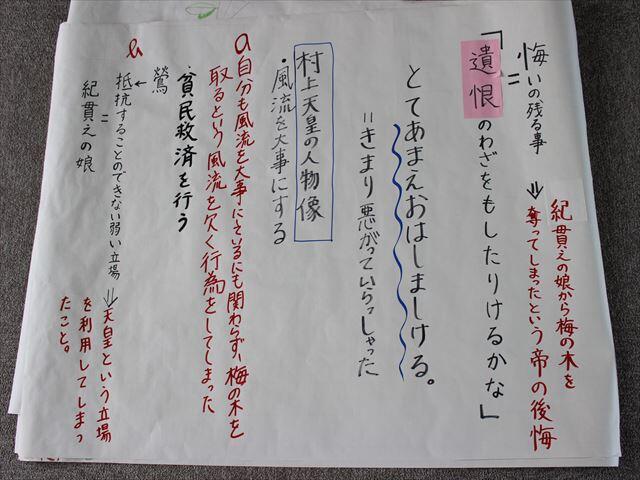 悔いの残る事
⇓ 紀貫之の娘から梅の木を
奪ってしまったという帝の後悔
「遺恨のわざをもしたりけるかな」
とてあまえおはしましける。
=きまり悪がっていらっしゃった
村上天皇の人物像
・風流を大事にする
a 自分も風流を大事にているにも関わらず、梅の木を
取るという風流を欠く行為をしてしまった
・貧民救済を行う
鶯
b ← 抵抗することのできない弱い立場 ⇒天皇という立場
を利用してしまっ
たこと。
=
紀貫之の娘